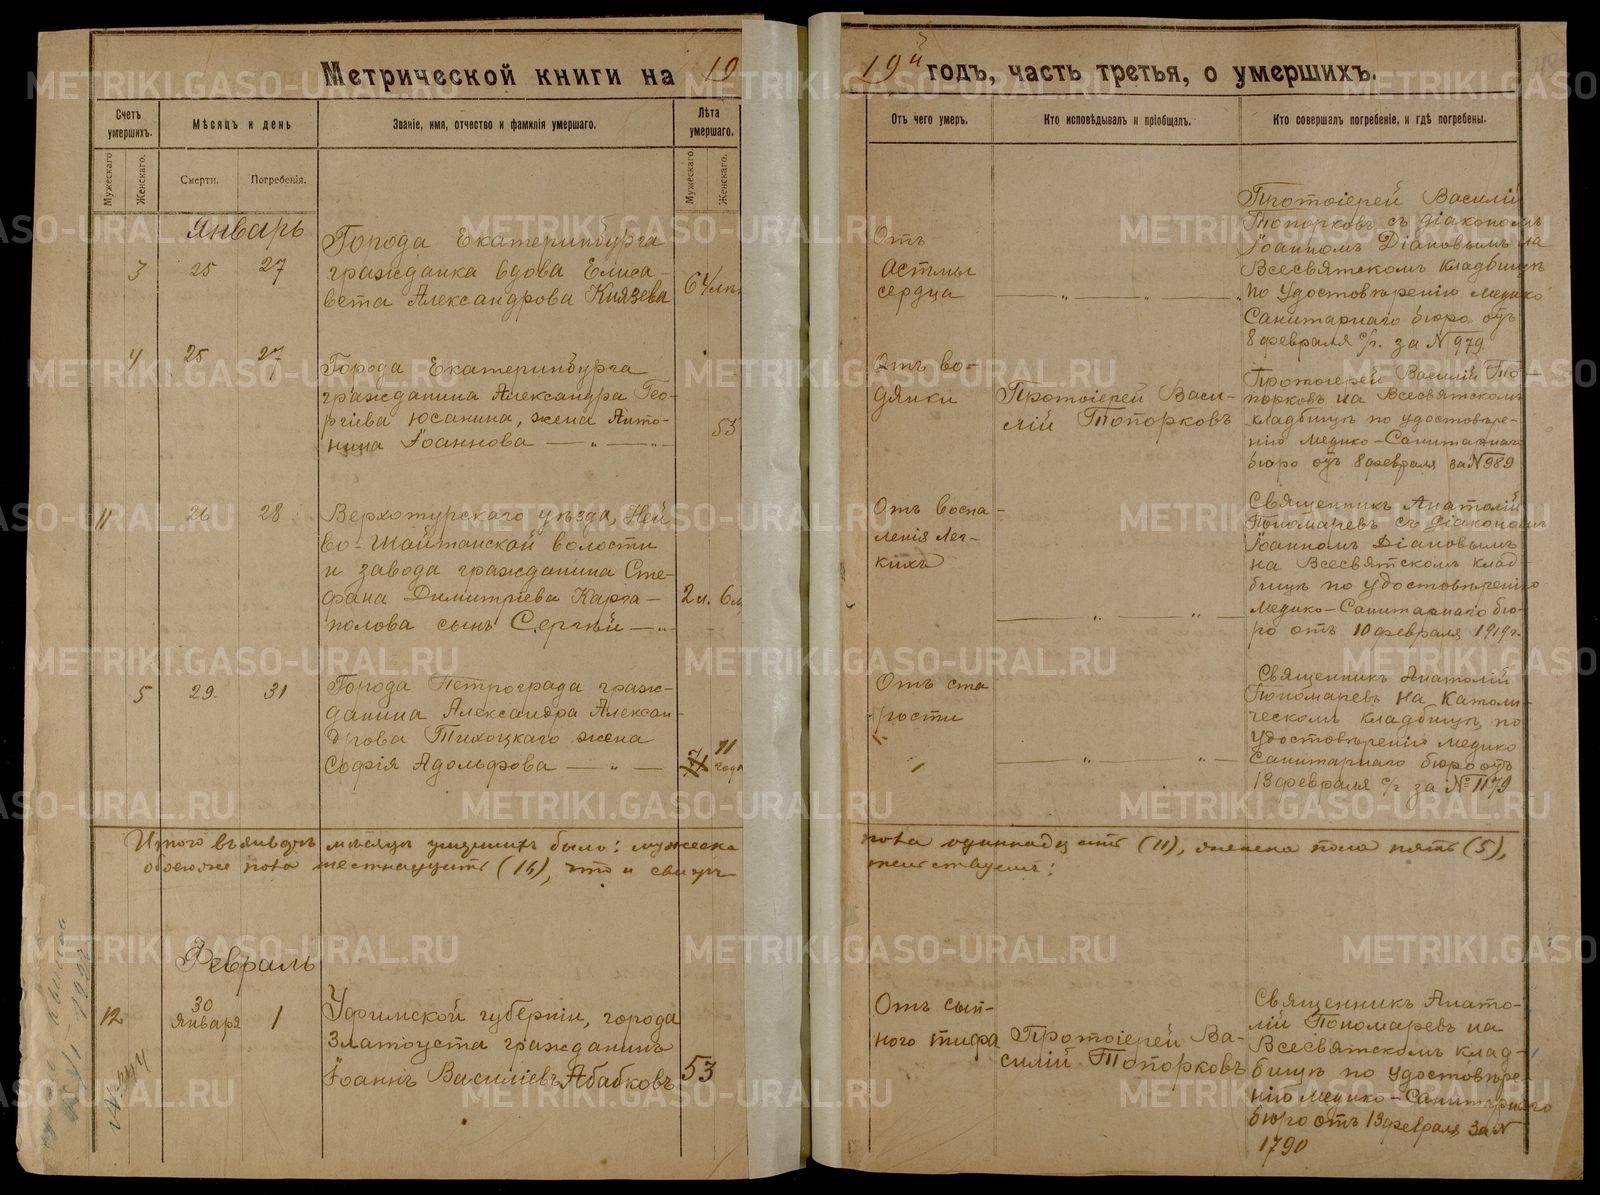 Метрической книги на 19
19й годъ, часть третья, о умершихъ.
Счетъ умершихъ.
Мѣсяцъ и день
Званіе, имя, отчество и фамилія умершаго.
Лѣта умершаго.
Отъ чего умеръ.
Кто исповѣдывалъ и пріобщалъ.
Кто совершалъ погребеніе, и гдѣ погребены.
Мужескаго
Женскаго.
Смерти.
Погребенія.
Мужескаго.
Женскаго.
Январь
3
25
27
Города Екатеринбурга
гражданка вдова Елиса-
вета Александрова Князева
64
Отъ
Астмы
сердца
Протоіерей Василій
Топорковъ съ діакономъ
Іоанномъ Діановымъ на
Всесвятскомъ кладбищѣ
по удостовѣренію Медико
Санитарнаго бюро отъ
8 февраля с/г. за N 979
4
25
27
Города Екатеринбурга
гражданина Александра Гео-
ргіева Юсанина, жена Анто-
нина Іоаннова — „ — „ —
53
Отъ во-
дянки
Протоіерей Васи-
лій Топорковъ
Протоіерей Василій То-
порковъ на Всесвятскомъ
кладбищѣ по удостовѣре-
нію Медико-Санитарнаго
бюро отъ 8 февраля за N 989
11
26
28
Верхотурскаго уѣзда, Ней
во-Шайтанской волости
и завода гражданина Сте-
фана Димитріева Карга-
полова сынъ Сергѣй — „ —
2 л. 6 м
Отъ воспа-
ленія Лег-
кихъ
Священникъ Анатолій
Пономаревъ съ діакономъ
Іоанномъ Діановымъ
на Всесвятскомъ клад-
бищѣ по удостовѣренію
Медико-Санитарнаго бю-
ро отъ 10 февраля 1919 г.
5
29.
31
Города Петрограда граж-
данина Александра Алексан-
дрова Тихоцкаго жена
Софія Адольфова — „ —
71 года
Отъ ста
рости
Священникъ Анатолій
Пономаревъ на Католи-
ческомъ кладбищѣ, по
удостовѣренію Медико
Санитарнаго бюро отъ
13 февраля с/г за № 1179
Итого въ январѣ мѣсяцѣ умершихъ было: мужеска
пола одиннадцать (11), женска пола пять (5),
обоего же пола шестнадцать (16), что и свидѣ-
тельствуемъ:
Февраль
12
30
Января
1
Уфимской губерніи, города
Златоуста гражданинъ
Іоаннъ Василіевъ Абабковъ
53
Отъ сып-
ного тифа
Протоіерей Ва-
силій Топорковъ
Священникъ Анато-
лій Пономаревъ на
Всесвятскомъ клад-
бищѣ по удостовѣре-
нію Медико-Санитарнаго
бюро отъ 13 февраля за N
1790
METRIKI.GASO-URAL.RU